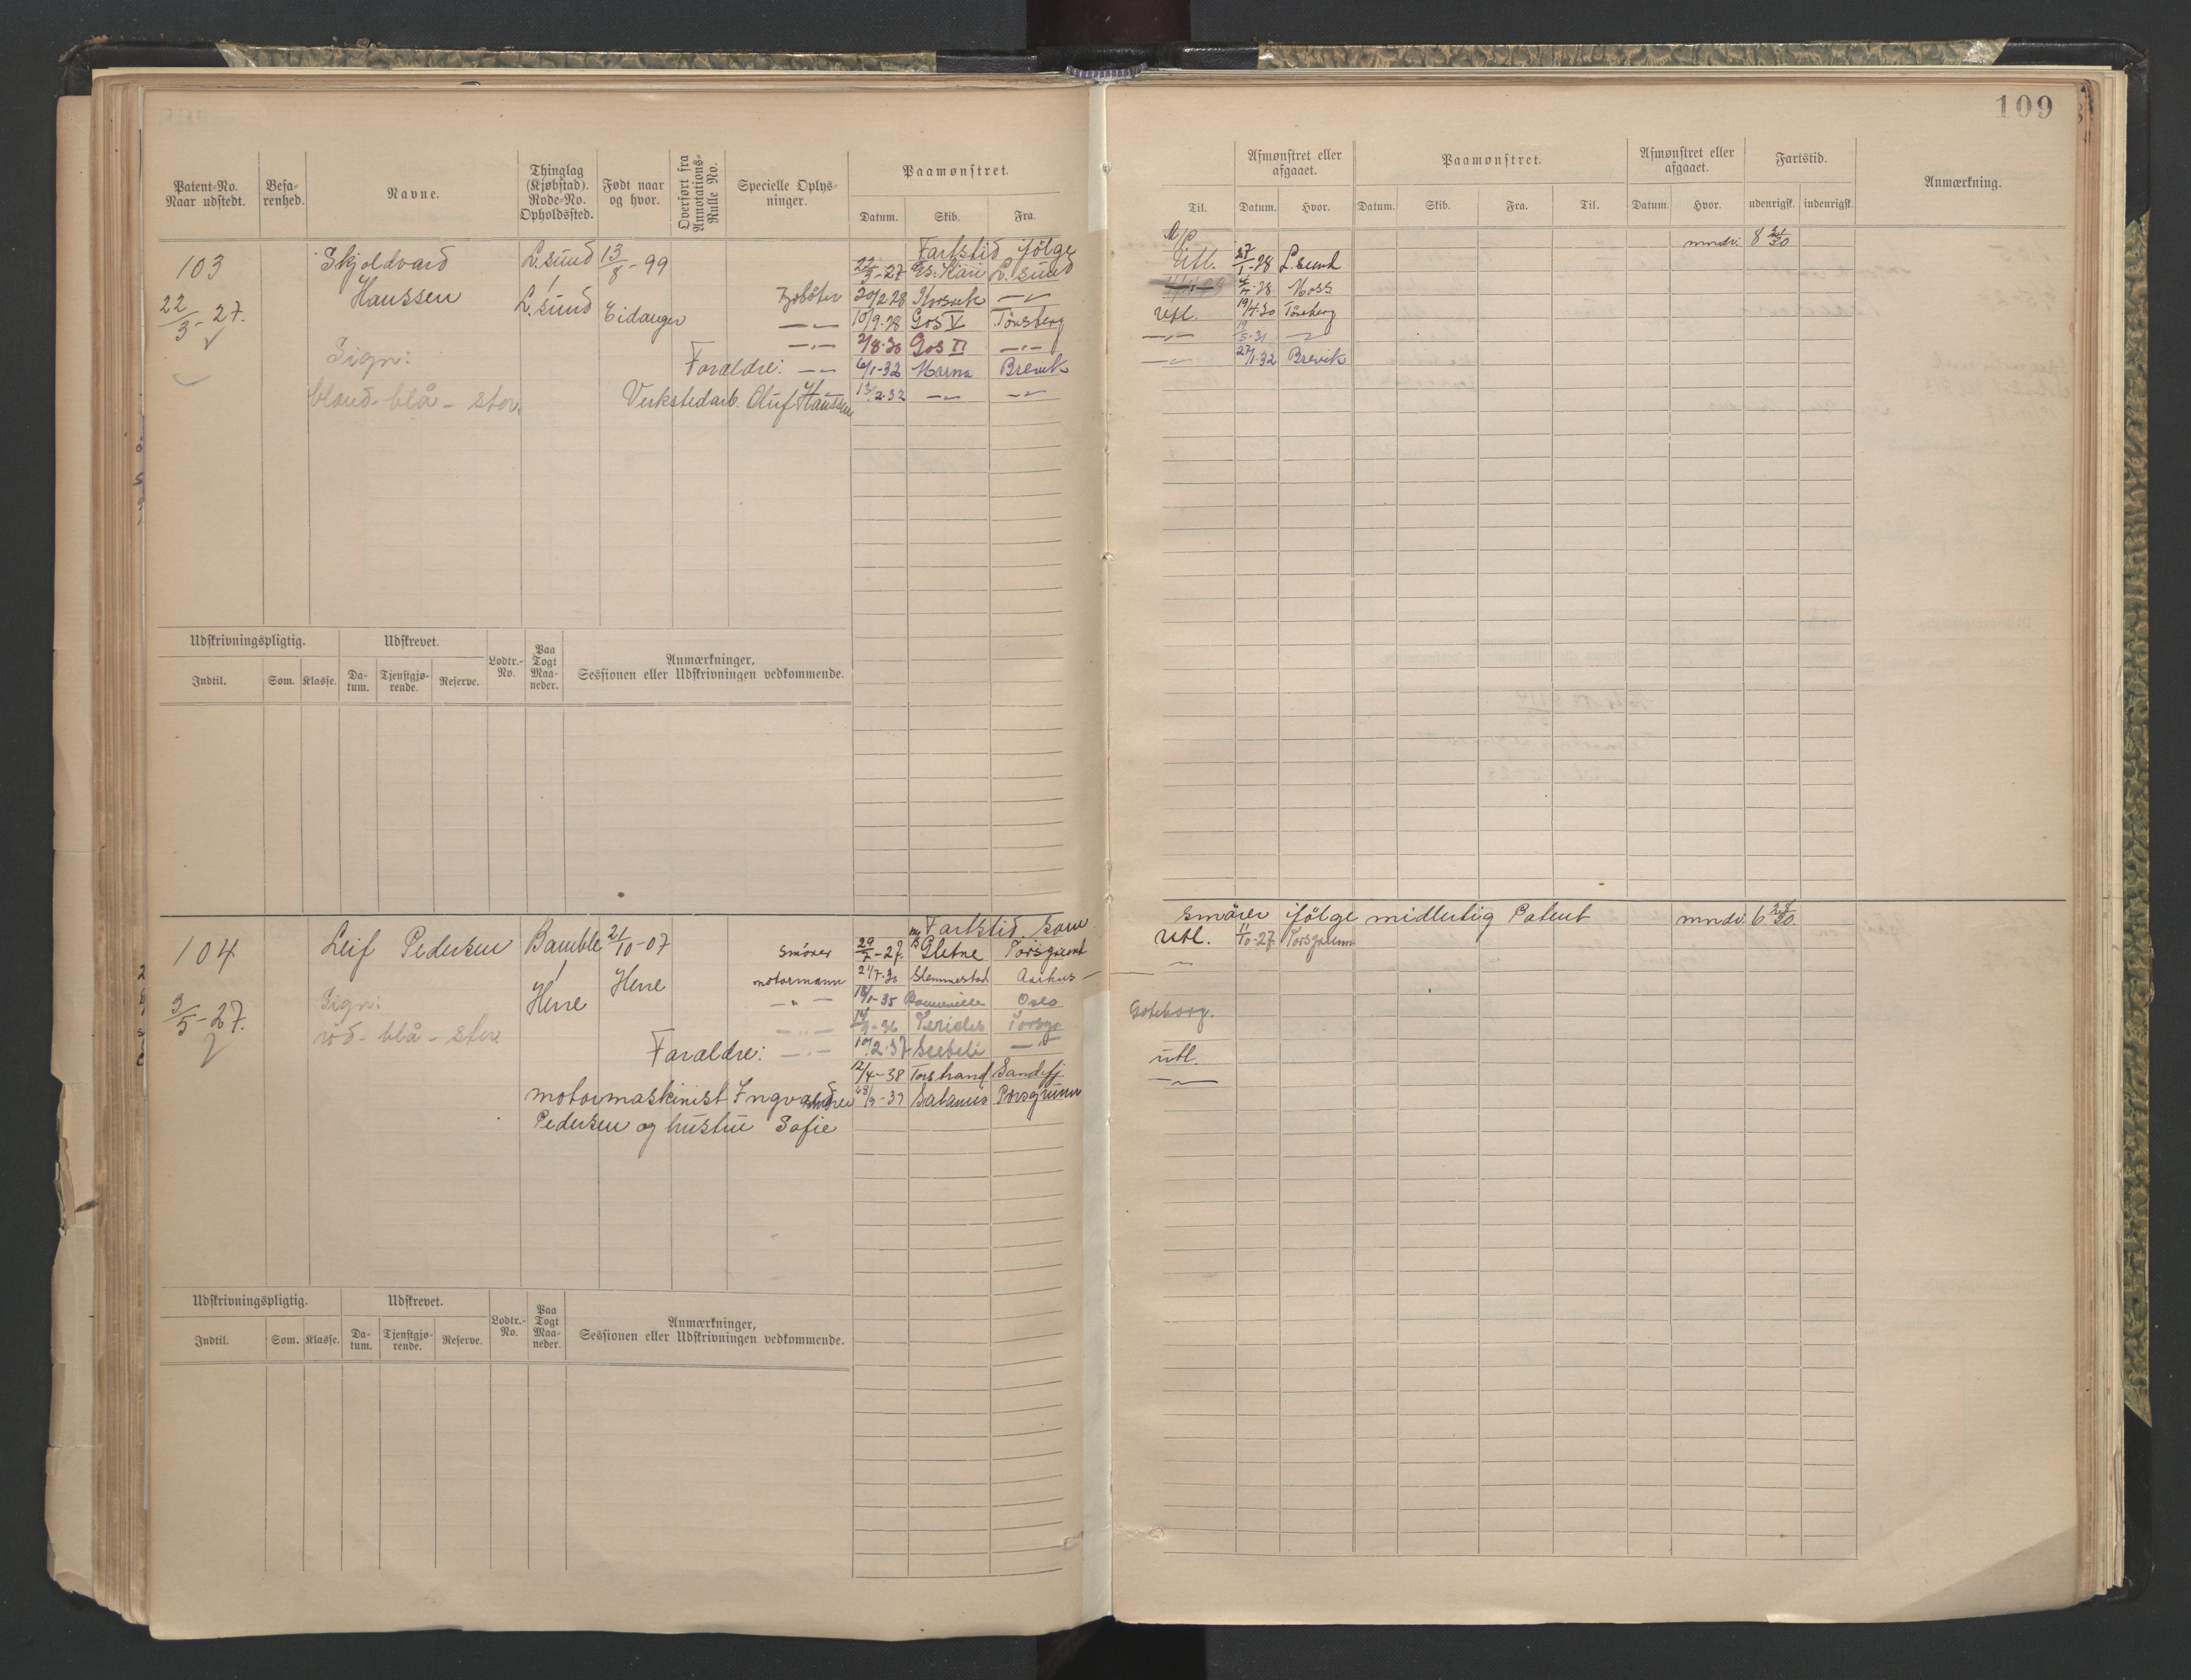 109
Patent-No. Naar udstedt.
Befarenhed.
Navne.
Thinglag (Kjøbstad). Rode-No. Opholdssted.
Født naar og hvor.
Overført fra Annotations-Rulle No.
Specielle Oplysninger.
Paamønstret.
Datum. Skib. Fra.
Til.
Afmønstret eller afgaaet.
Datum. Hvor.
Paamønstret.
Datum. Skib. Fra. Til.
Afmønstret eller afgaaet.
Datum. Hvor.
Fartstid.
udenrigsk. indenrigsk.
Anmærkning.
103 Skjoldvard L.sund 13/8-99 Fartstid ifølge mndr. 8
22/3-27. Hanssen L.sund Eidanger
22/3-27 Es. Kari L.sund Utl. 27/1-28 L.sund
Fyrbøter 20/2 28 Korsvik -"- 4/4-28 Moss
-"- 10/9-28 Gos V Tønsberg Utl. 19/4.30 Tønsberg
Sign: -"- 2/8-30 Gos II -"- -"- 19/5-31 -"-
Foraldre: -"- 6/1-32 Marna Brevik -"- 27/1-32 Brevik
blond-blå-stor. Verkstedarb. Oluf Hanssen 13/2-32 -"- -"-
Udskrivningspligtig. Udskrevet. Lodtr.-No. Paa Togt Maaneder. Anmærkninger, Sessionen eller Udskrivningen vedkommende.
Indtil. Som. Klasse. Datum. Tjenstgjørende. Reserve.
Fartstid som smører ifølge midlertig Patent mndr. 6
104 Leif Pedersen Bamble 21/10-07 smører 29/7-27. Gletne Porsgrunt Utl. 11/10-27. Porsgrunn
Herre Herre motormann 21/7.30 Slemmestad Aarhus -"-
3/5-27. Sign: -"- 18/1-35 Oslo Göteborg.
rød-blå-stor. -"- 36 Pericles Porsgr
Foraldre: -"- 10/2.37 -"- utl.
12/4-38 Torstrand Sandefj -"-
motormaskinist Ingvald smører 28/9-39 Salamis Porsgrunn
Pedersen og hustru Sofie
Udskrivningspligtig. Udskrevet. Lodtr.-No. Paa Togt Maaneder. Anmærkninger, Sessionen eller Udskrivningen vedkommende.
Indtil. Som. Klasse. Datum. Tjenstgjørende. Reserve.